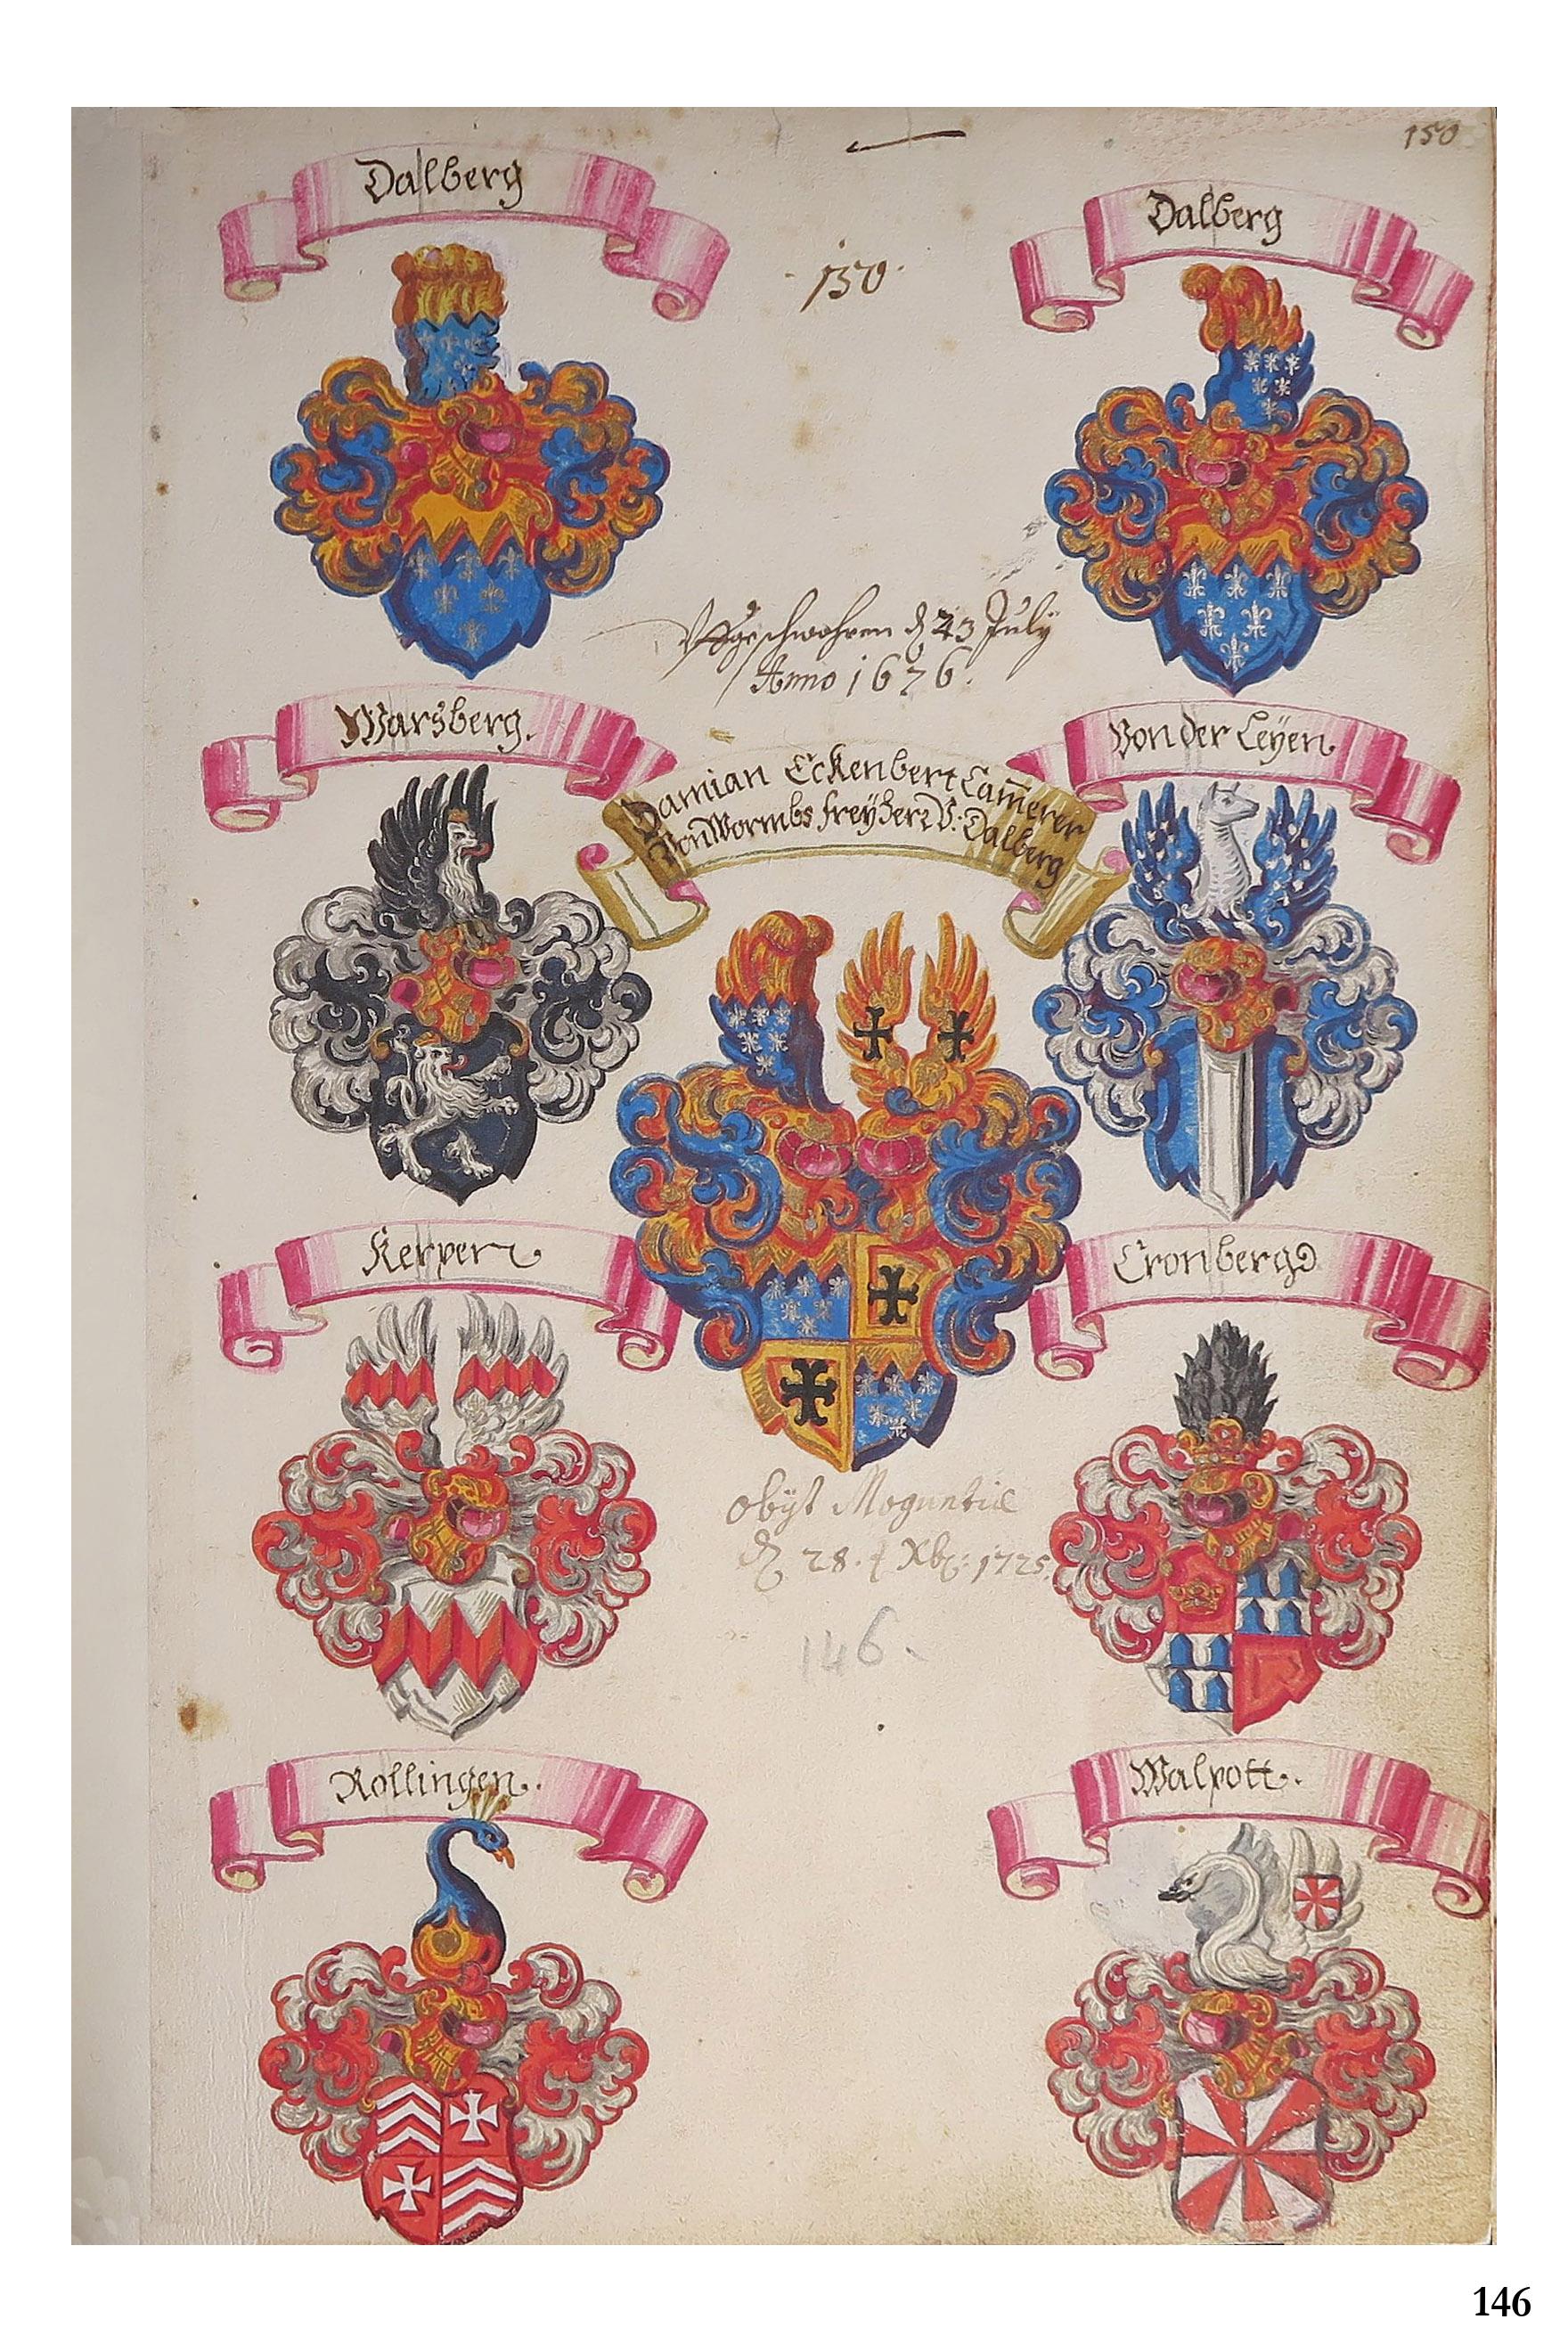 150
Dalberg
Dalberg
130
Uffgeschwohren d 23 July
Anno 1676.
Warsberg.
Von der Leyen
Damian Eckenbert Cam̄erer
Von Wormbs freyherr V: Dalberg
Kerpen
Cronberg
obyt Moguntiæ
d 28. 1725
146.
Rollingen.
Walpott.
146